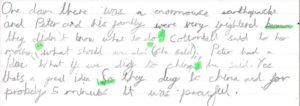 One dawn there was a enormouse earthquake
and Peter and his family were very frightend
they didn't know what to do! Cottontail said to her
mother, what should we do? (she said), Peter had a
idea. What if we dig to china he said. Yes
thats a great idea So they dug to china and for
probely 5 minutes It was peaceful.